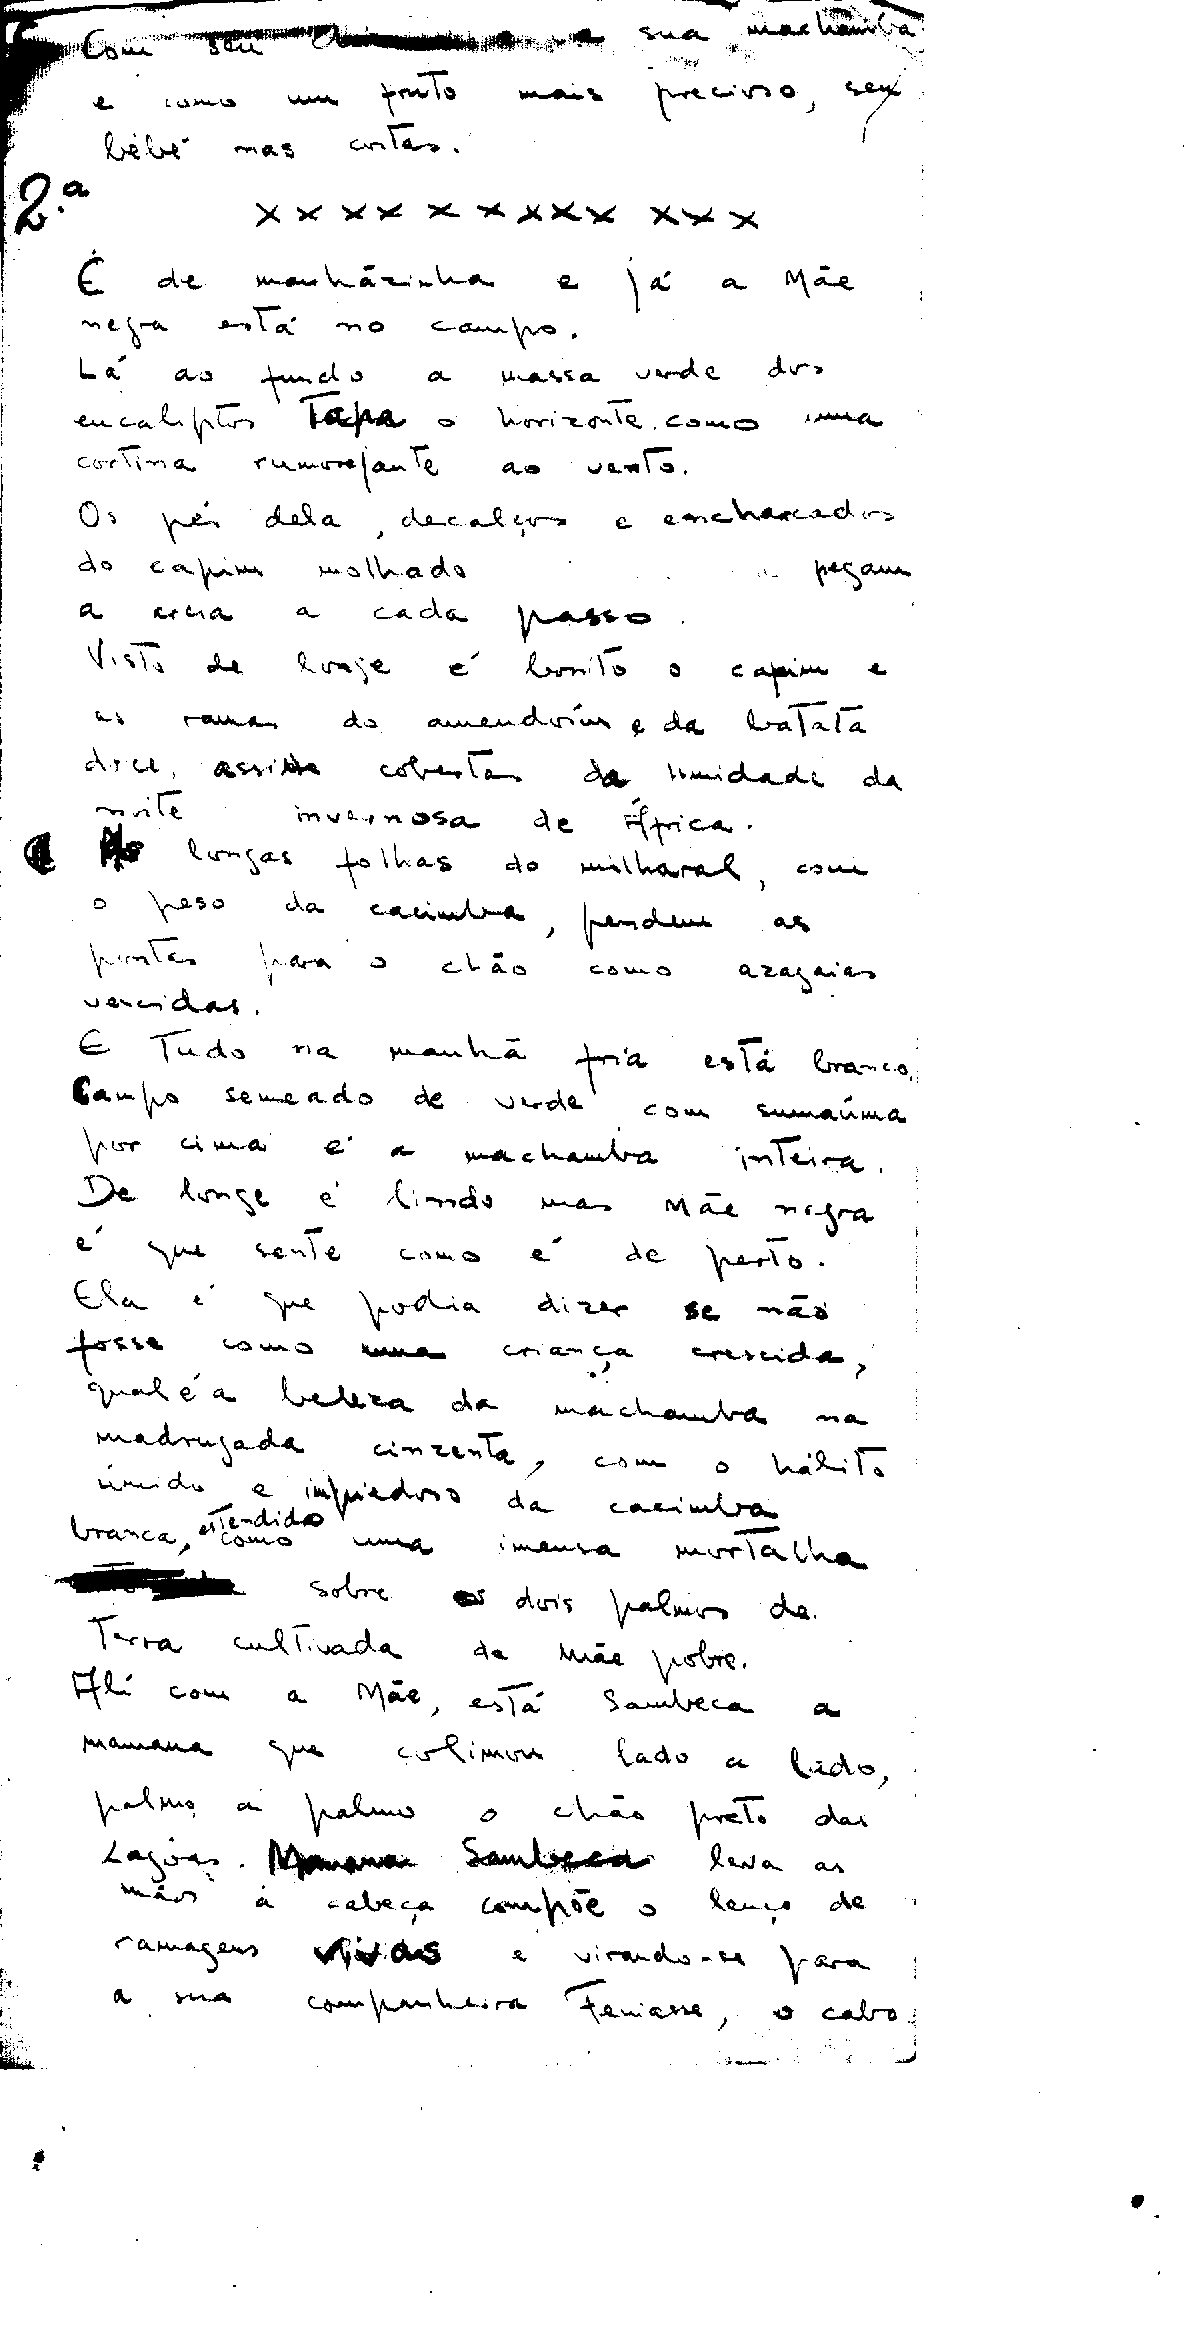 Com seu e a sua machamba
e como um fruto mais precioso, seu
bébé nas costas.
2.ª
x x x x x x x x x x x x x
É de manhãzinha e já a Mãe
negra está no campo.
Lá ao fundo a massa verde dos
eucaliptos Tapa o horizonte como uma
cortina rumorejante ao vento.
Os pés dela, decalços e encharcados
do capim molhado pegam
a areia a cada passo.
Visto de longe é bonito o capim e
as ramas do amendoím e da batata
doce, assim cobertas da humidade da
noite invernosa de África.
As longas folhas do milharal, com
o peso da cacimba, pendem as
pontas para o chão como azagaias
vencidas.
E Tudo na manhã fria está branco.
Campo semeado de verde com sumaúma
por cima é a machamba inteira.
De longe é lindo mas Mãe negra
é que sente como é de perto.
Ela é que podia dizer se não
fosse como uma criança crescida,
qual é a beleza da machamba na
madrugada cinzenta, com o hálito
úmido e impiedoso da cacimba
branca, estendido como uma imensa mortalha
sobre os dois palmos de
Terra cultivada da Mãe pobre.
Ali com a Mãe, está Sambeca a
mamana que colimou lado a lado,
palmo a palmo o chão preto das
Lagoas. Mamana Sambeca leva as
mãos à cabeça compõe o lenço de
ramagens vivas e virando-se para
a sua companheira Feniasse, o cabo